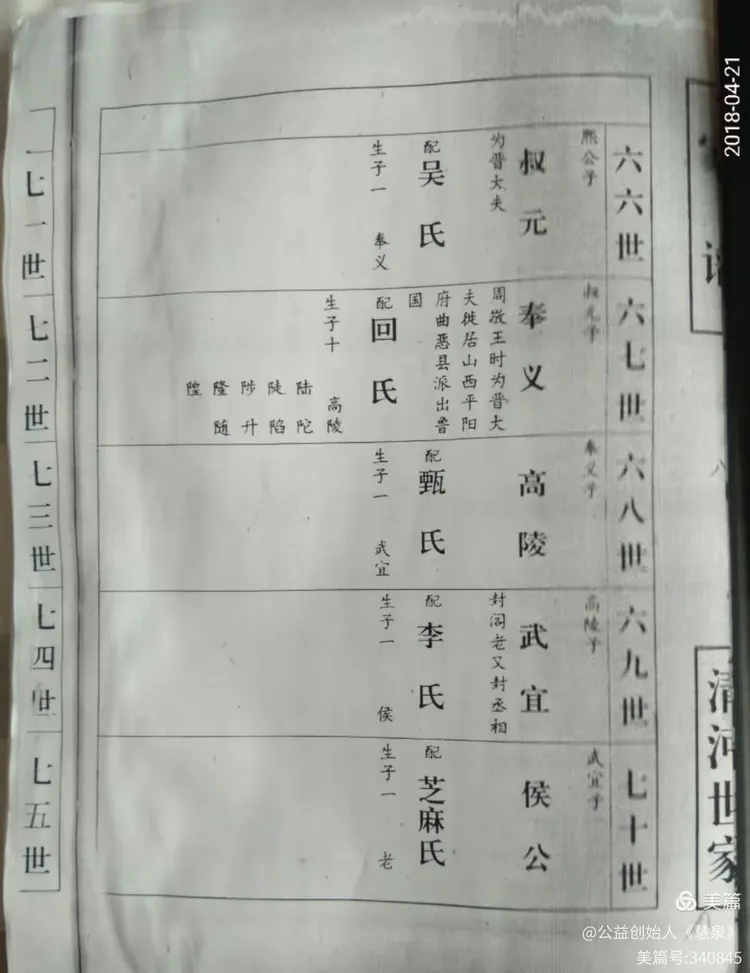 2018-04-21
清河世家
六六世
熙公子
叔元
为晋大夫
配吴氏
生子一 奉义
六七世
叔元子
奉义
周敬王时为晋大
夫徙居山西平阳
府曲恶县派出鲁
国
配回氏
生子十 高陵
陆 陀
陡 陷
陟 升
隆 随
隍
六八世
奉义子
高陵
配甄氏
生子一 武宜
六九世
高陵子
武宜
封阁老又封丞相
配李氏
生子一 侯
七十世
武宜子
侯公
配芝麻氏
生子一 老
七一世
七二世
七三世
七四世
七五世
美篇
@公益创始人《慧泉》
美篇号:340845